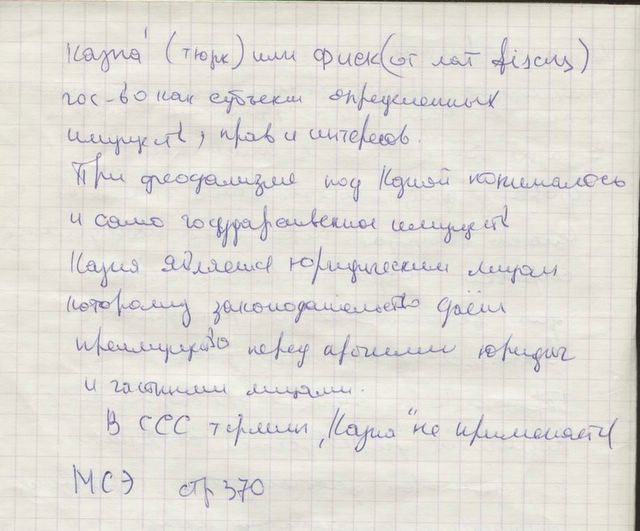 Казна́ (тюрк) или фиск (от лат fiscus)
гос-во как субъект определенных
имуществ, прав и интересов.
При феодализме под Казной понималось
и само государственное имущество
Казна является юридическим лицам
которому законодательство даёт
преимущество перед прочими юридич
и частными лицами.
В ССС термин „Казна" не применяется
МСЭ стр 370